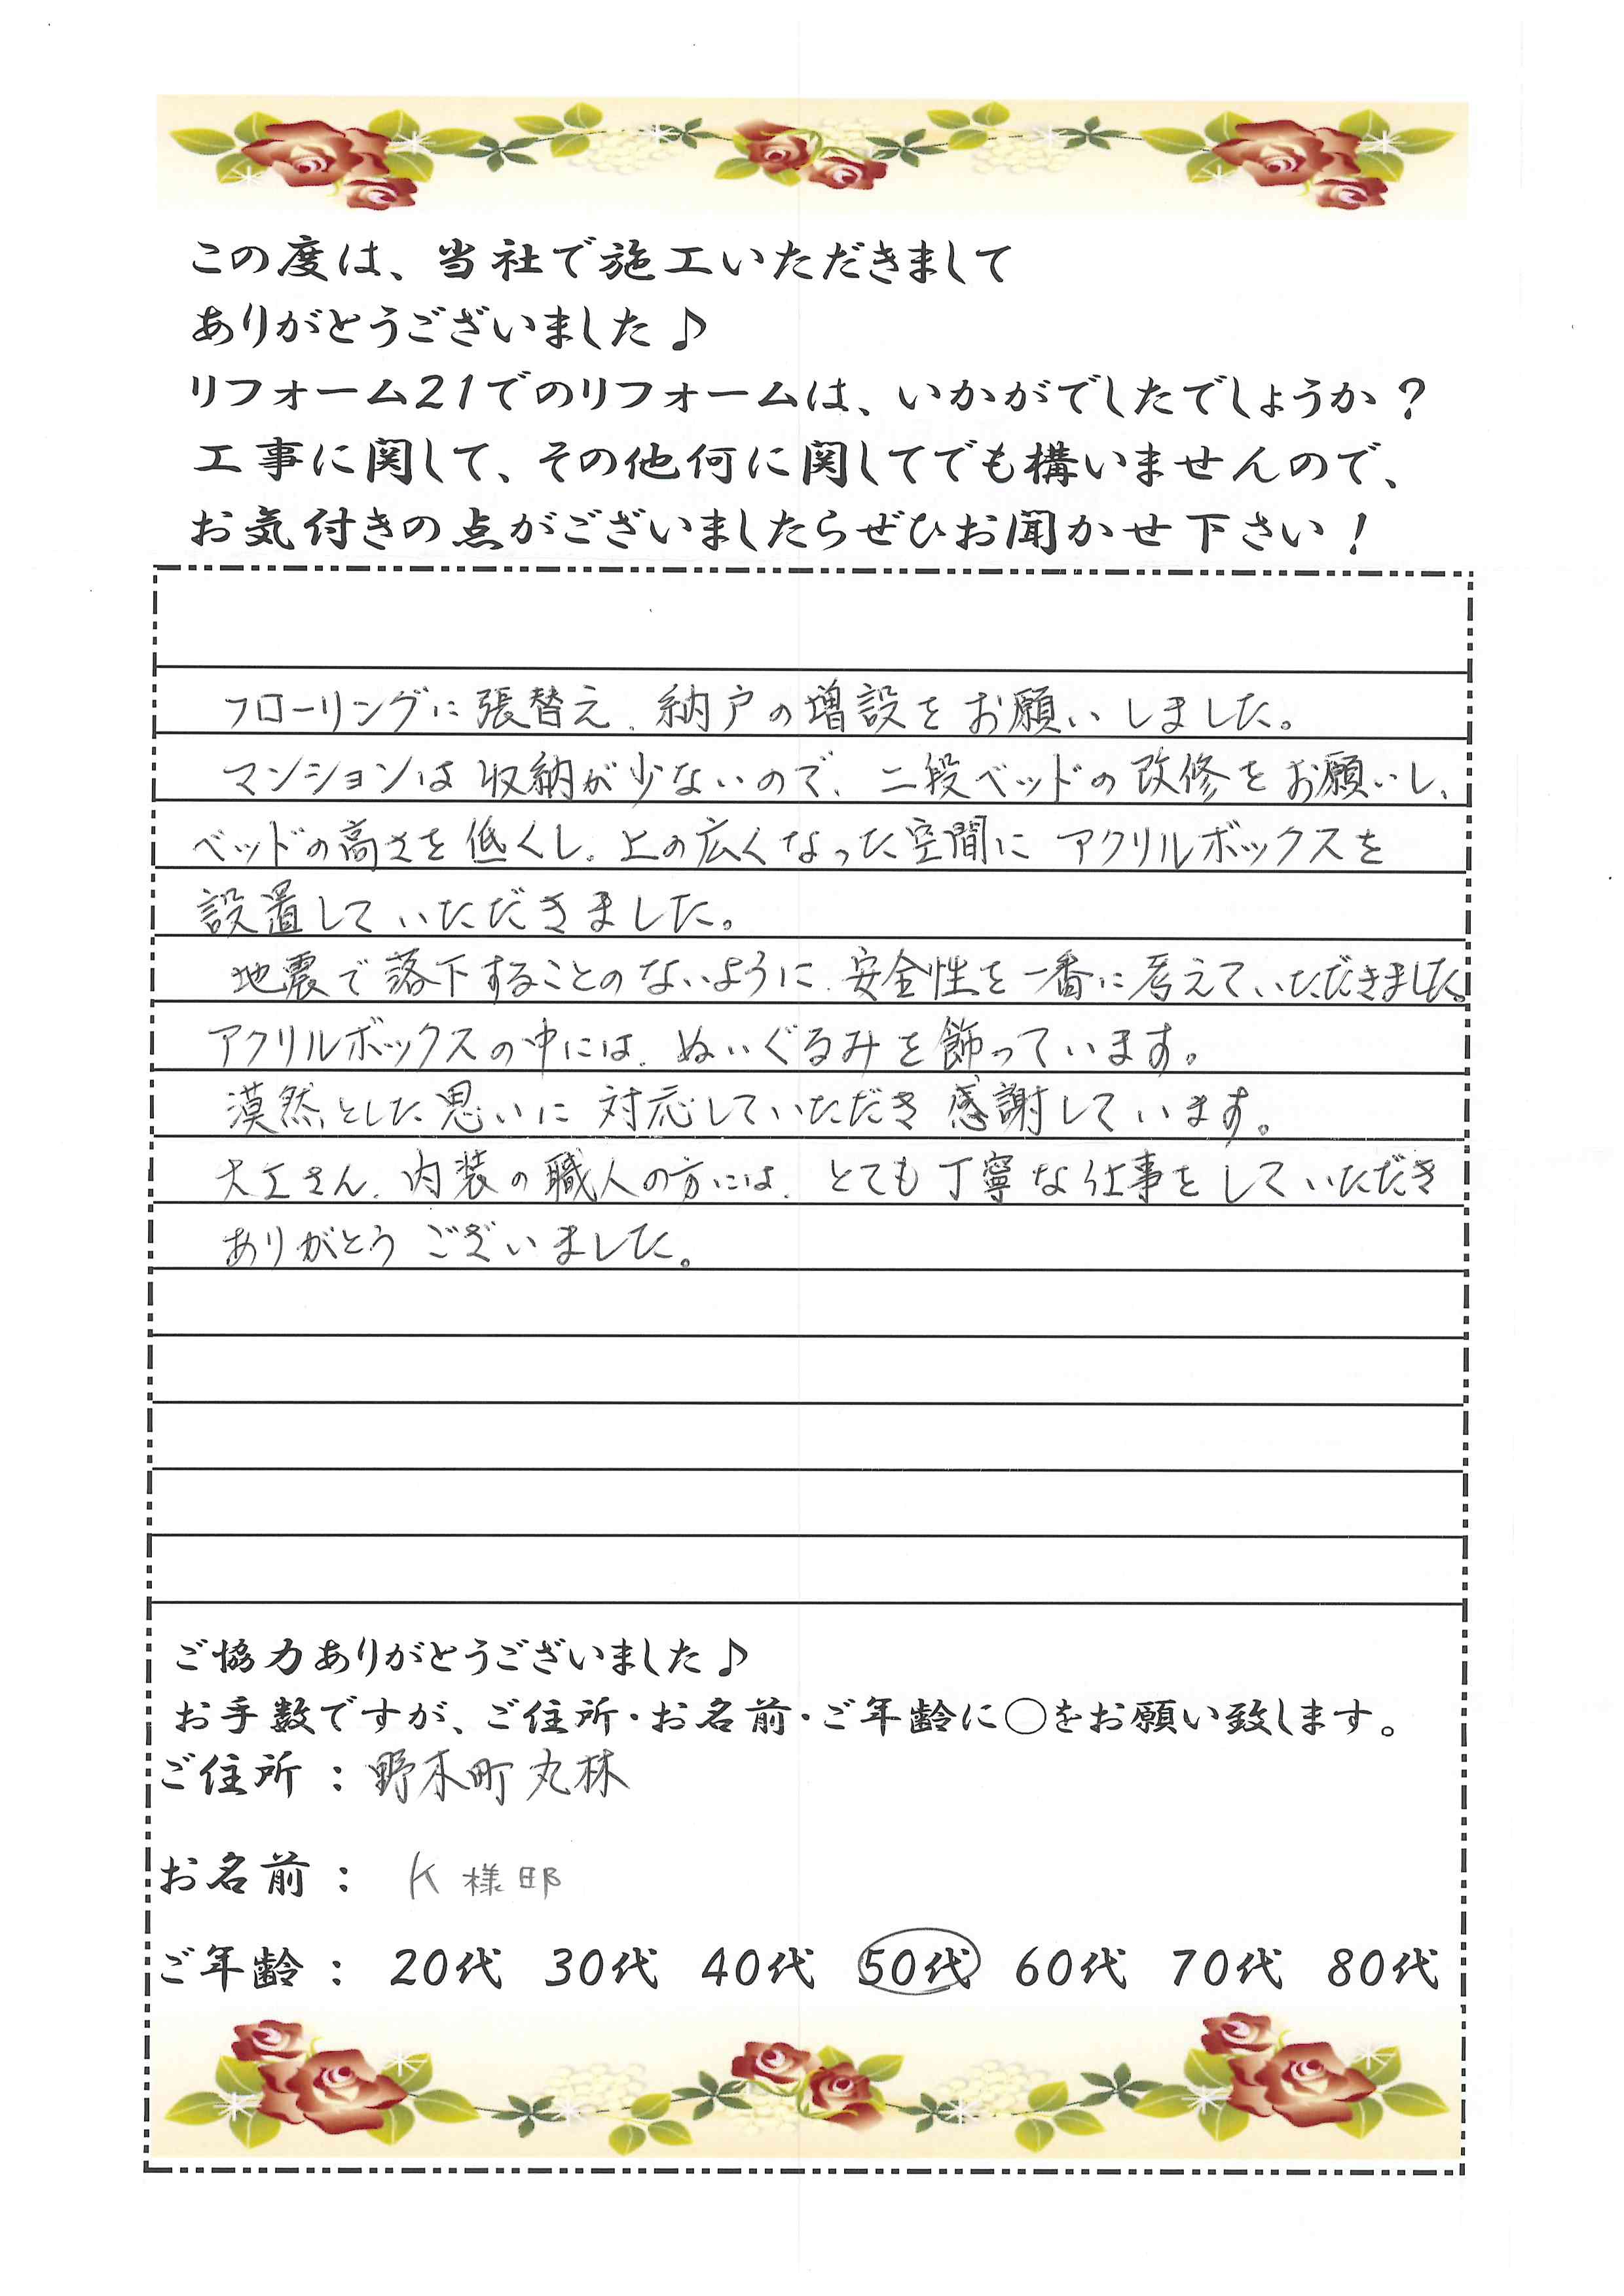 この度は、当社で施工いただきまして
ありがとうございました♪
リフォーム21でのリフォームは、いかがでしたでしょうか？
工事に関して、その他何に関してでも構いませんので、
お気付きの点がございましたらぜひお聞かせ下さい！
フローリングに張替え、納戸の増設をお願いしました。
マンションは収納が少ないので、二段ベッドの改修をお願いし、
ベッドの高さを低くし、上の広くなった空間にアクリルボックスを
設置していただきました。
地震で落下することのないように、安全性を一番に考えていただきました。
アクリルボックスの中には、ぬいぐるみを飾っています。
漠然とした思いに対応していただき感謝しています。
大工さん、内装の職人の方には、とても丁寧な仕事をしていただき
ありがとうございました。
ご協力ありがとうございました♪
お手数ですが、ご住所・お名前・ご年齢に〇をお願い致します。
ご住所：野木町丸林
お名前：K様邸
ご年齢：20代 30代 40代 50代 60代 70代 80代